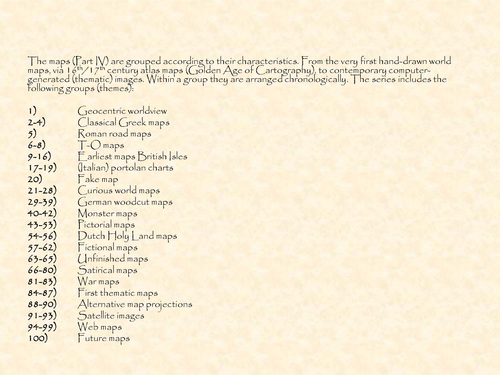 The maps (Part IV) are grouped according to their characteristics. From the very first hand-drawn world
maps, via 16th/17th century atlas maps (Golden Age of Cartography), to contemporary computer-
generated (thematic) images. Within a group they are arranged chronologically. The series includes the
following groups (themes):
1) Geocentric worldview
2-4) Classical Greek maps
5) Roman road maps
6-8) T-O maps
9-16) Earliest maps British Isles
17-19) (Italian) portolan charts
20) Fake map
21-28) Curious world maps
29-39) German woodcut maps
40-42) Monster maps
43-53) Pictorial maps
54-56) Dutch Holy Land maps
57-62) Fictional maps
63-65) Unfinished maps
66-80) Satirical maps
81-83) War maps
84-87) First thematic maps
88-90) Alternative map projections
91-93) Satellite images
94-99) Web maps
100) Future maps